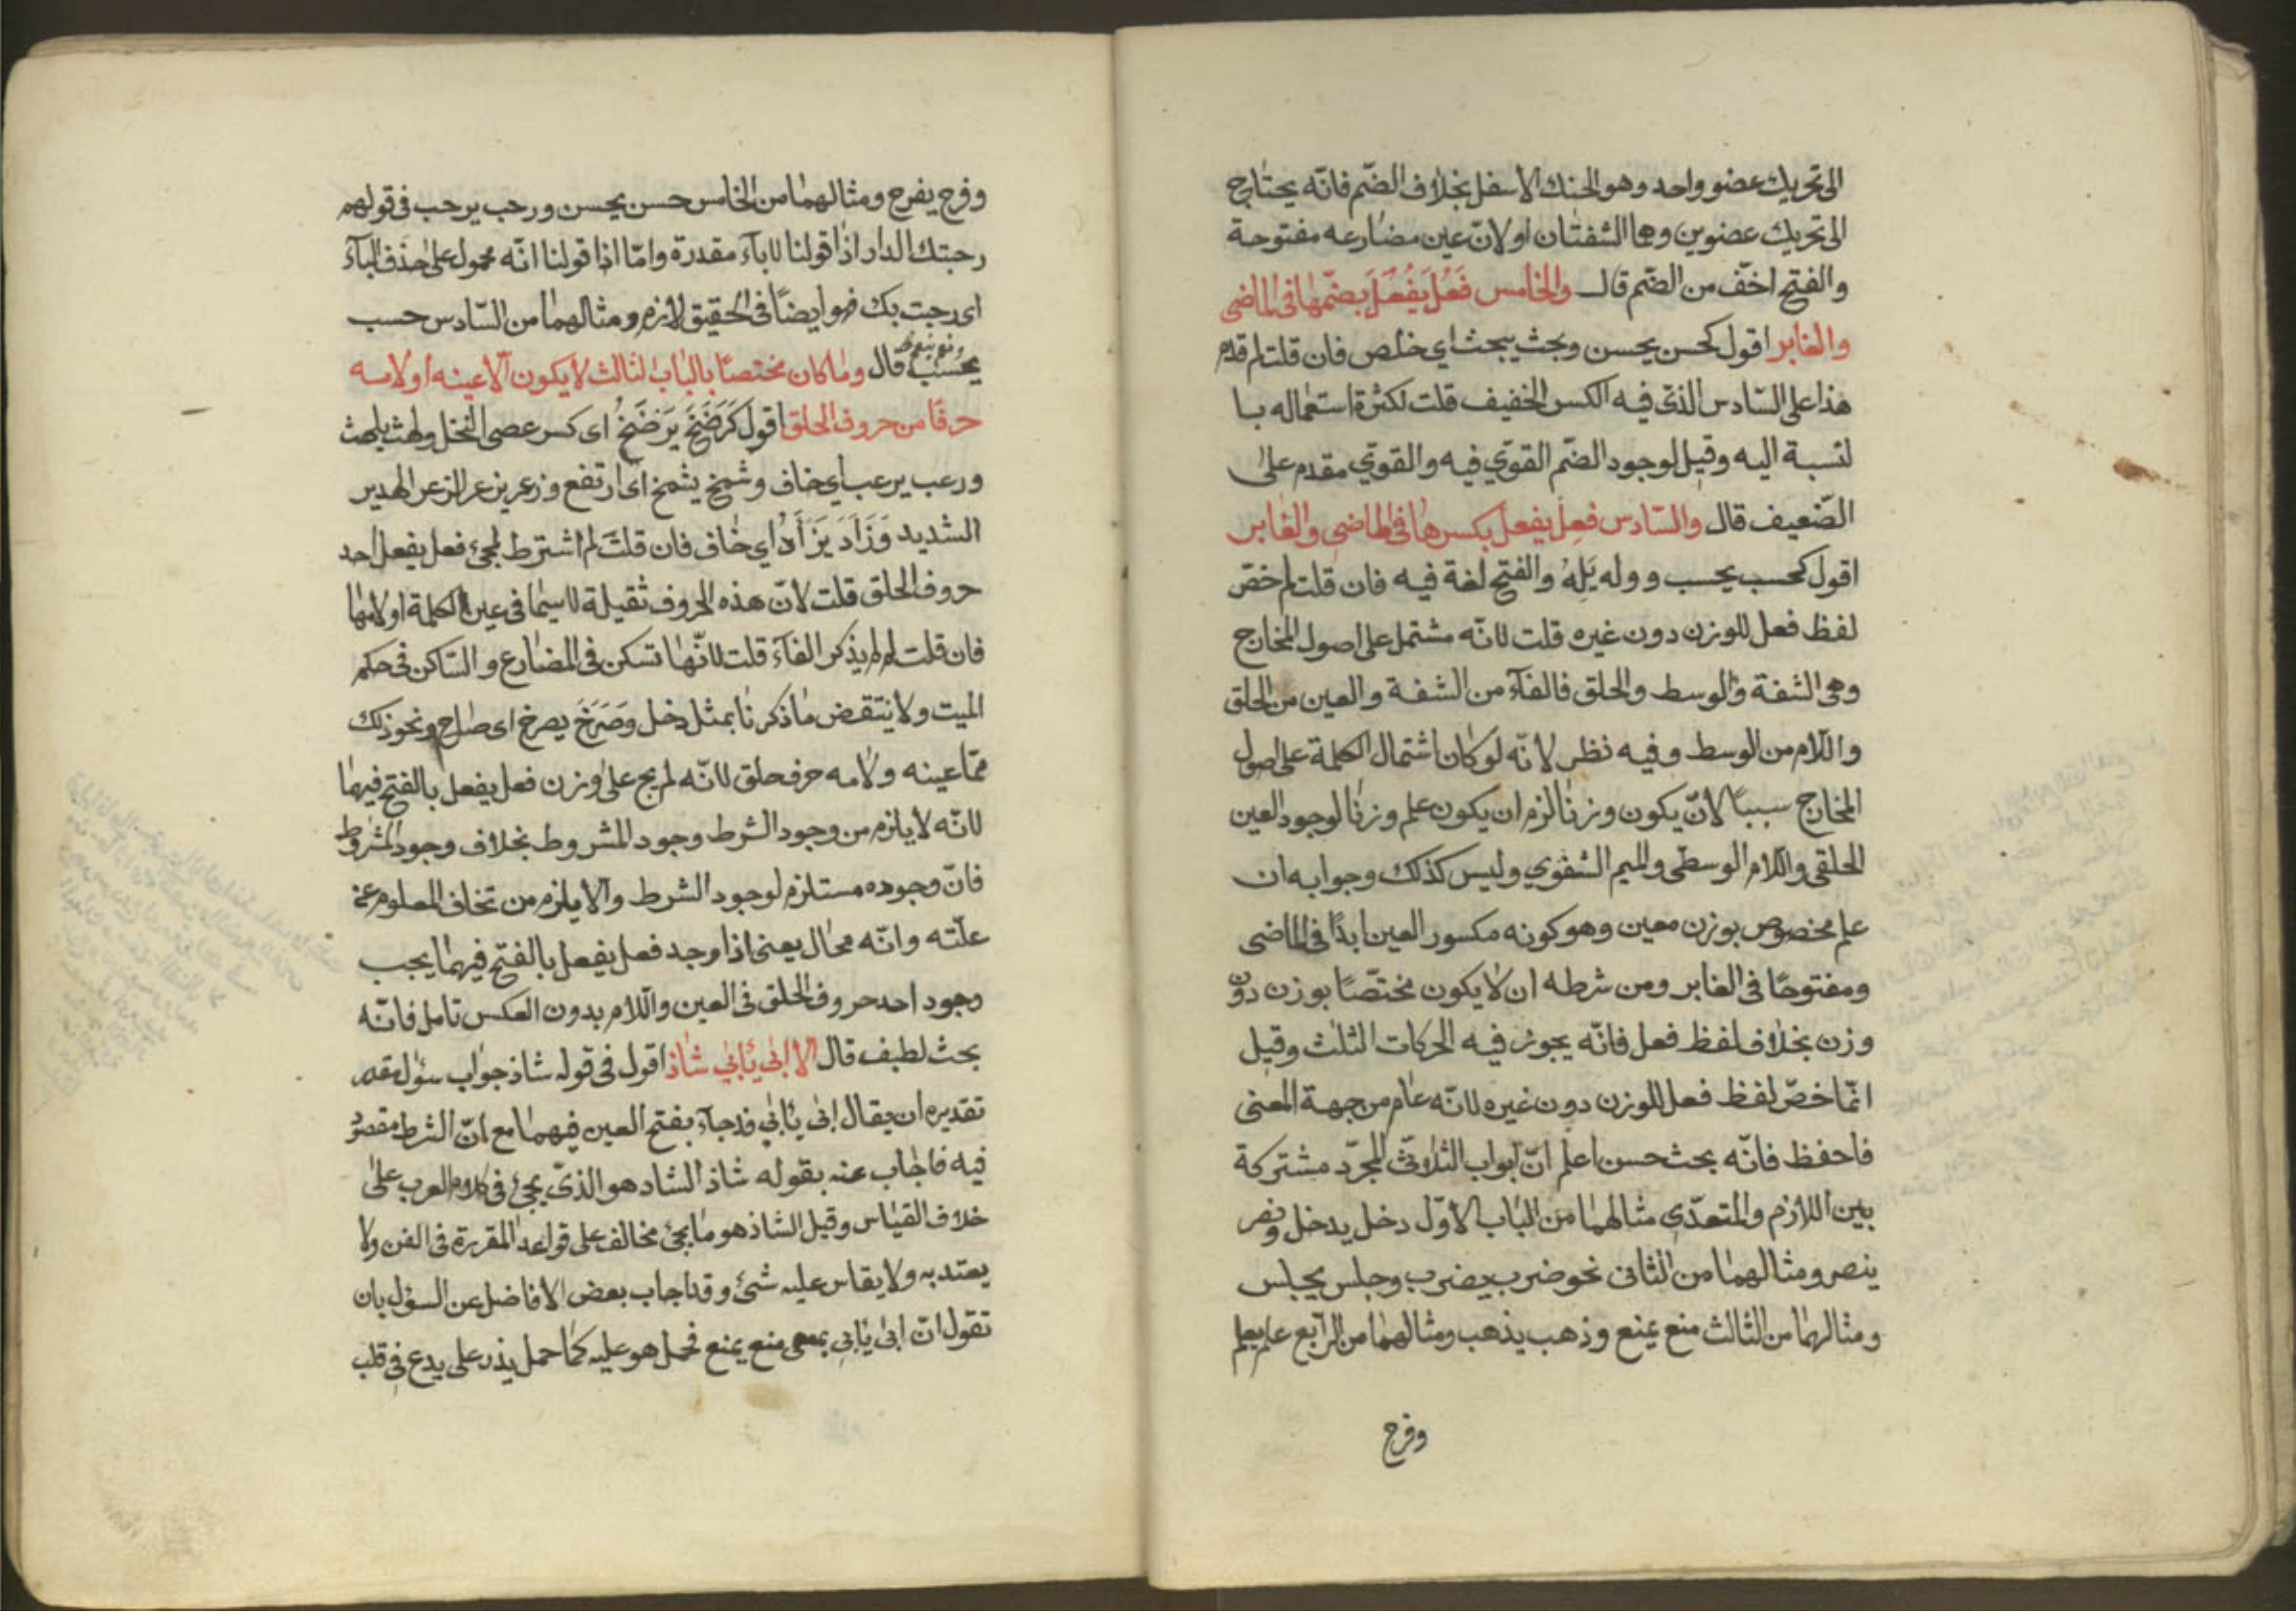 الى تحريك عضو واحد وهو الحنك الاسفل بخلاف الضّم فانّه يحتاج
الى تحريك عضوين وهما الشفتان او لانّ عين مضارعه مفتوحة
والفتح اخفّ من الضّم قال والخامس فَعُلَ يَفْعُلُ بضمّها فى الماضى
والغابر اقول كحسن يحسن وبحث يبحث اي خلص فان قلت لم قدم
هذا على السّادس الذى فيه الكسر الخفيف قلت لكثرة استعماله با
لنسبة اليه وقيل لوجود الضّم القوّي فيه والقوّي مقدم على
الضّعيف قال والسّادس فعِل يفعل بكسرها فى الماضى والغابر
اقول كحسب يحسب ووله يَلِهُ والفتح لغة فيه فان قلت لم خصّ
لفظ فعل للوزن دون غيره قلت لانّه مشتمل على اصول المخارج
وهى الشفة والوسط والحلق فالفآء من الشفة والعين من الحلق
واللّام من الوسط وفيه نظر لانّه لو كان اشتمال الكلمة على اصول
المخارج سببًا لانّ يكون وزنًا لزم ان يكون علم وزنًا لوجود العين
الحلقى واللّام الوسطى والميم الشفوي وليس كذلك وجوابه ان
علم مخصوص بوزن معين وهو كونه مكسور العين ابدًا فى الماضى
ومفتوحًا فى الغابر ومن شرطه ان لا يكون مختصّا بوزن دون
وزن بخلاف لفظ فعل فانّه يجوز فيه الحركات الثلث وقيل
انّما خصّ لفظ فعل للوزن دون غيره لانّه عام من جهة المعنى
فاحفظ فانّه بحث حسن اعلم انّ ابواب الثلاثى المجرّد مشتركة
بين اللازم والمتعدّى مثالهما من الباب الاوّل دخل يدخل ونصر
ينصر ومثالهما من الثانى نحو ضرب يضرب وجلس يجلس
ومثالهما من الثالث منع يمنع وذهب يذهب ومثالهما من الرّابع علم يعلم
وفرح
وفرح يفرح ومثالهما من الخامس حسن يحسن ورحب يرحب فى قولهم
رحبتك الدار اذا قولنا لا بآء مقدرة وامّا اذا قولنا انّه محمول على حذف البآء
اى رحبت بك فهو ايضًا فى الحقيق لازم ومثالهما من السّادس حسب
يحسب ونعم ينعم قال وما كان مختصّا بالباب الثالث لا يكون الّا عينه او لامه
حرفًا من حروف الحلق اقول كَرَضَخَ يَرْضَخُ اى كسر عصى النخل ولهث يلهث
ورعب يرعب اي خاف وشمخ يشمخ اى ارتفع وزعر يزعر الزعر الهدير
الشديد وَزَأَدَ يَزْأَدُ اي خاف فان قلت لم اشترط لمجئ فعل يفعل احد
حروف الحلق قلت لانّ هذه الحروف ثقيلة لا سيّما فى عين الكلمة او لامها
فان قلت لم لم يذكر الفآء قلت لانّها تسكن فى المضارع والسّاكن فى حكم
الميت ولا ينتقض ما ذكرنا بمثل دخل وصَرَخَ يصرخ اى صاح ونحو ذلك
ممّا عينه ولامه حرف حلق لانّه لم يجئ على وزن فعل يفعل بالفتح فيهما
لانّه لا يلزم من وجود الشرط وجود المشروط بخلاف وجود المشروط
فانّ وجوده مستلزم لوجود الشرط والّا يلزم من تخلف المعلوم عن
علّته وانّه محال يعنى اذا وجد فعل يفعل بالفتح فيهما يجب
وجود احد حروف الحلق فى العين واللّام بدون العكس تامل فانّه
بحث لطيف قال الا ابى يأبى شاذ اقول فى قوله شاذ جواب سؤل مقدر
تقديره ان يقال ابى يأبى قد جآء بفتح العين فيهما مع انّ الشرط مقصود
فيه فاجاب عنه بقوله شاذ الشاد هو الذى يجئ فى كلام العرب على
خلاف القياس وقيل الشاذ هو ما يجئ مخالف على قواعد المقررة فى الفن ولا
يعتد به ولا يقاس عليه شئ وقد اجاب بعض الافاضل عن السؤل بان
تقول انّ ابى يأبى بمعنى منع يمنع فحمل هو عليه كما حمل يذر على يدع فى قلب